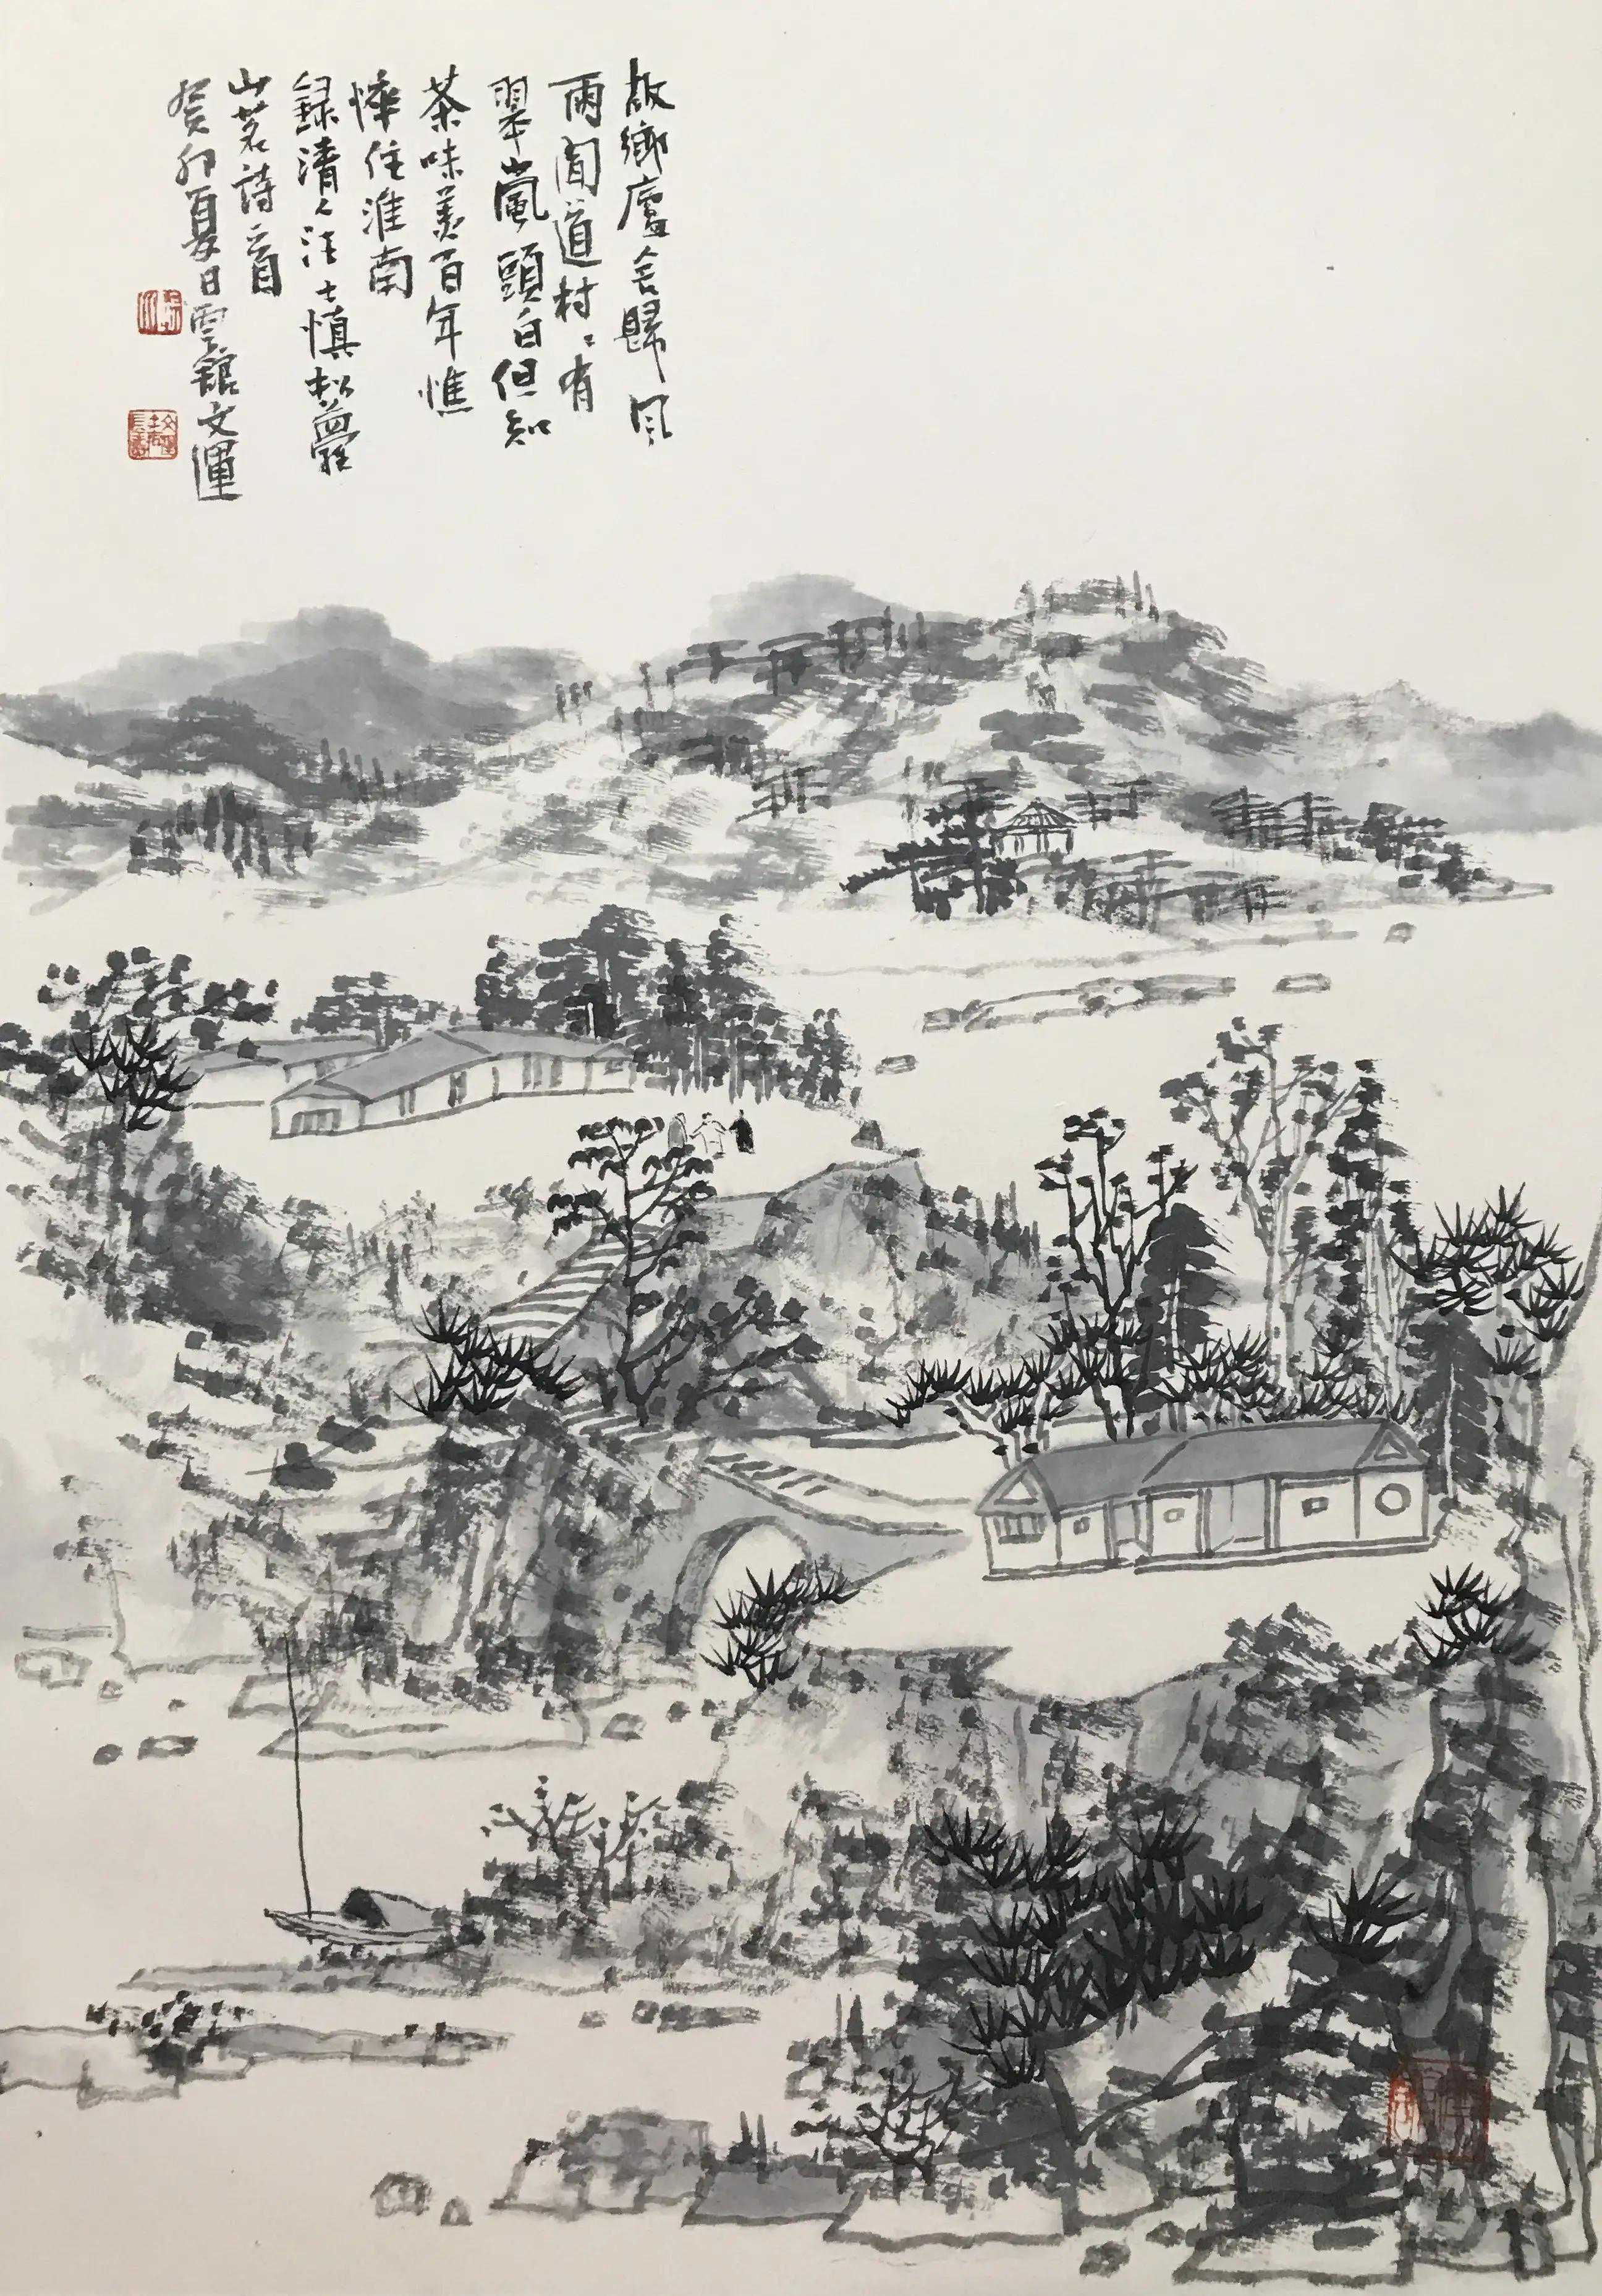 故鄉廬舍歸風
雨聞道村〻有
翠嵐頭白但知
茶味美百年憔
悴住淮南
録清人汪士慎松蘿
山茗詩一首
癸卯夏日雲館文運